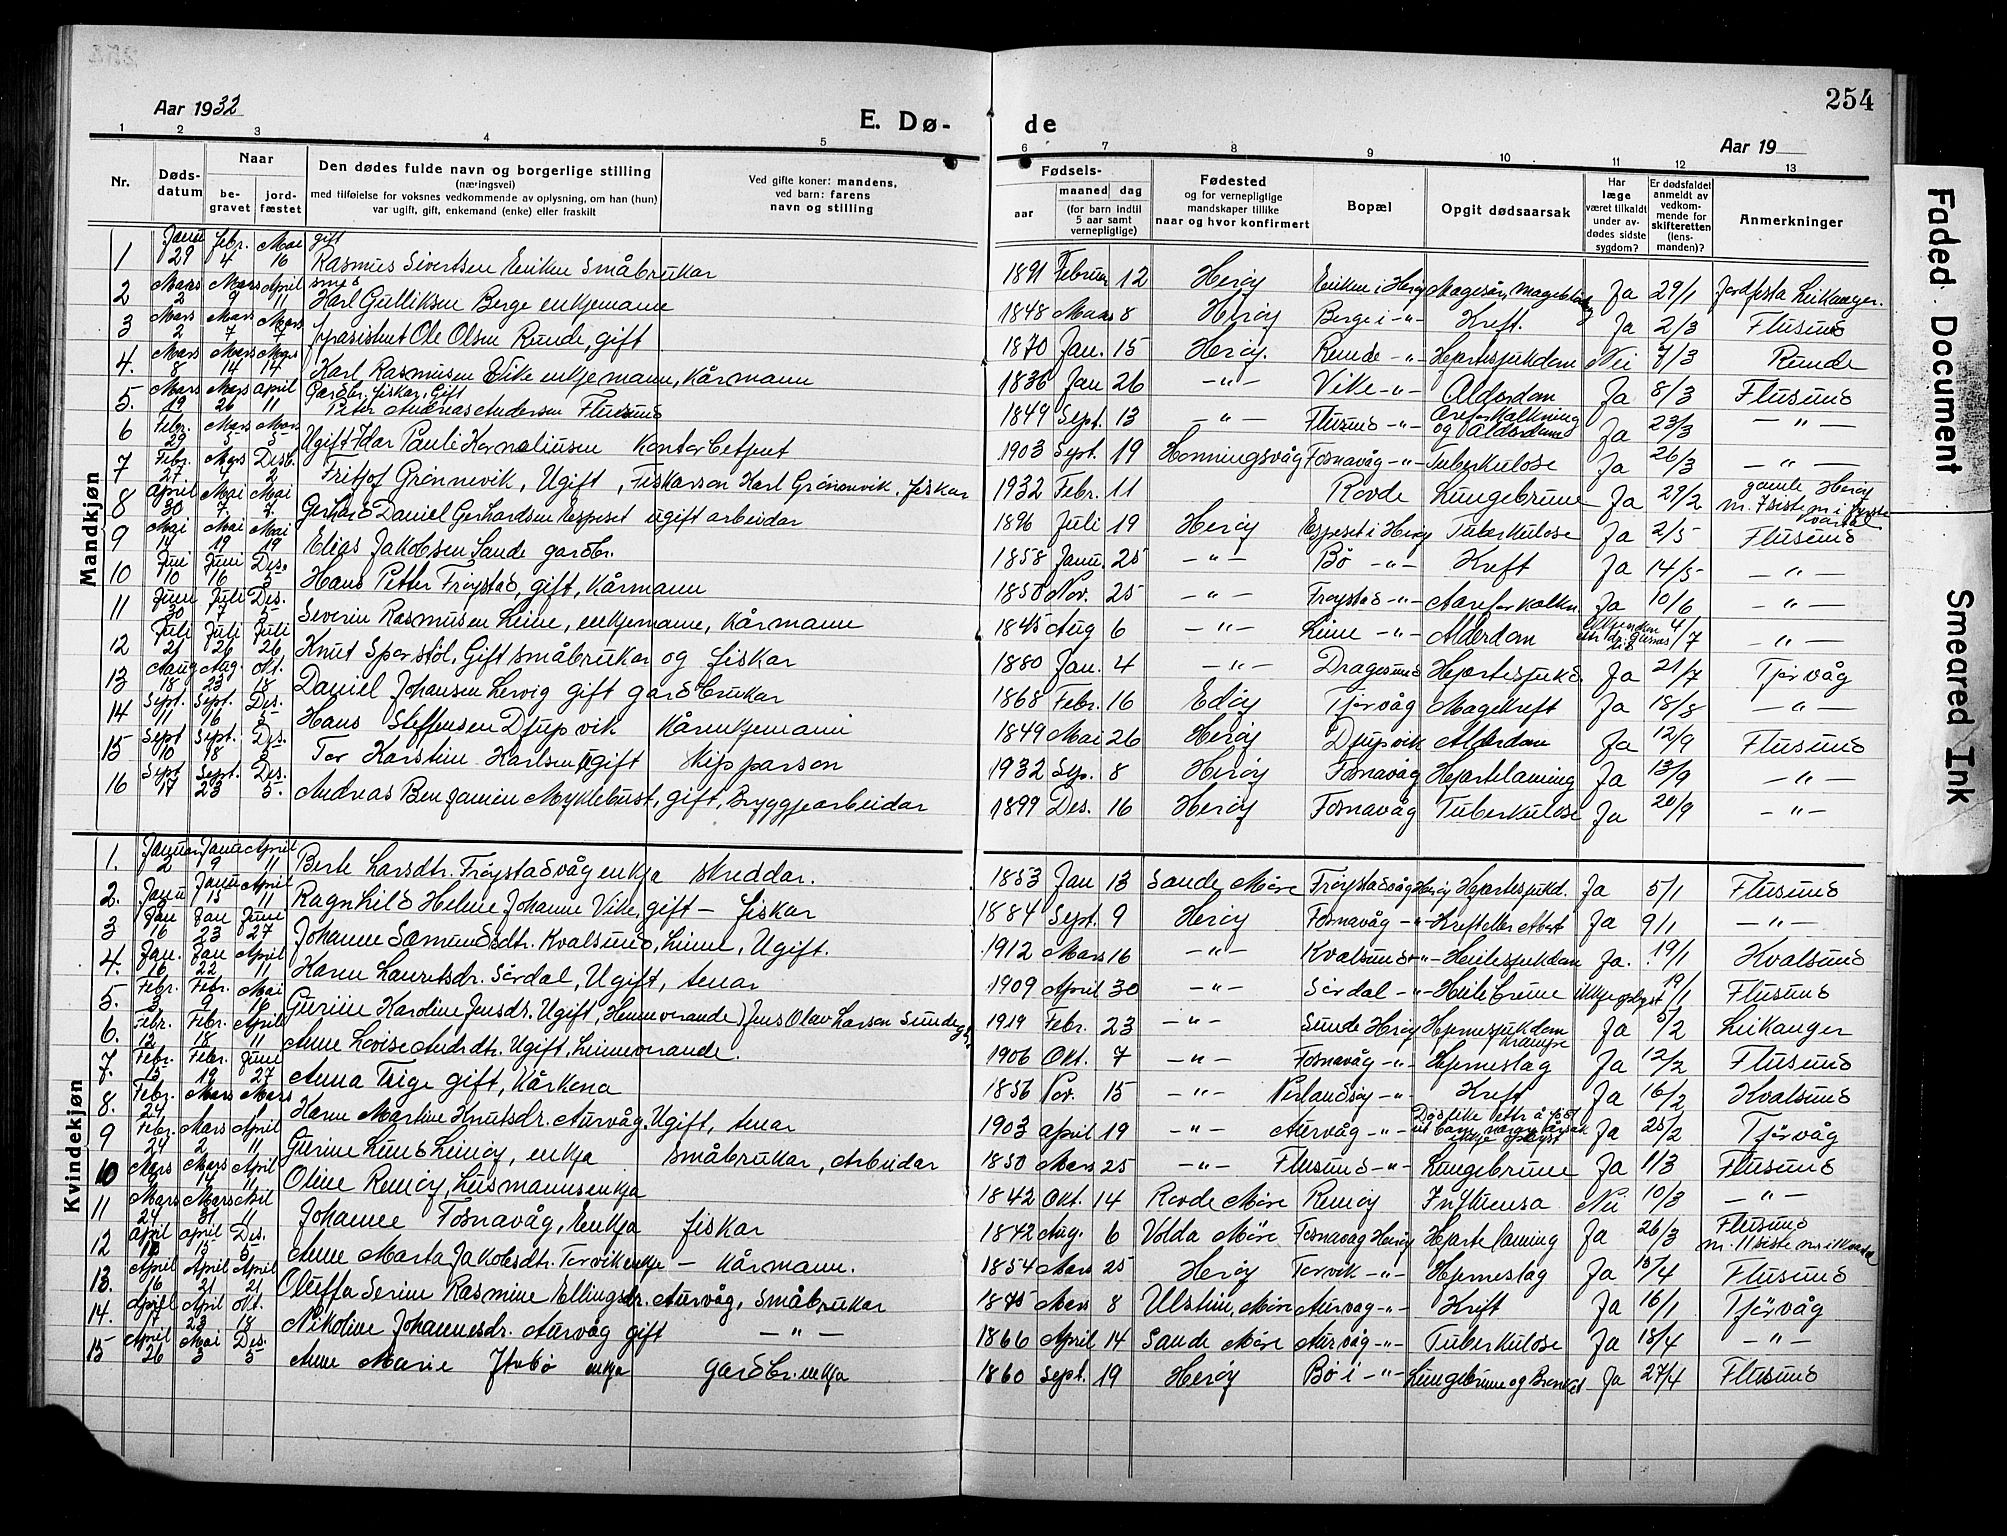 254
Aar 1932
E. Dø-
de
Aar 19
1 2 3 4 5 6 7 8 9 10 11 12 13
Nr.
Døds-
datum
Naar
be-
gravet
jord-
fæstet
Den dødes fulde navn og borgerlige stilling
(næringsvei)
med tilføielse for voksnes vedkommende av oplysning, om han (hun)
var ugift, gift, enkemand (enke) eller fraskilt
Ved gifte koner: mandens,
ved barn: farens
navn og stilling
Fødsels-
aar
maaned
dag
(for barn indtil
5 aar samt
vernepligtige)
Fødested
og for vernepligtige
mandskaper tillike
naar og hvor konfirmert
Bopæl
Opgit dødsaarsak
Har
læge
været tilkaldt
under av-
dødes sidste
sygdom?
Er dødsfaldet
anmeldt av
vedkom-
mende for
skifteretten
(lens-
manden)?
Anmerkninger
Mandkjøn
1 Janu 29 Febr. 4 Mai 16 gift Rasmus Sivertsen Eriken Småbrukar 1891 Februar 12 Herøy Eriken i Herøy Magesår, Ja 29/1 Jordfesta Leikanger.
2 Mars 2 Mars 9 April 11 smed Karl Gulliksen Berge enkjemann 1848 Mars 8 Herøy Berge i -"- Kreft. Ja 2/3 Flusund
3 Mars 2 Mars 7 Mars 7 Ole Olsen Runde, gift 1870 Jan. 15 Herøy. Runde -"- Hjartesjukdom Nei 7/3 Runde
4. Mars 8 Mars 14 Mars 14 Karl Rasmusen Vike enkjemann, Kårmann 1836 Jan 26 -"- Vike -"- Alderdom Ja 8/3 Flusund
5. Mars 19 Mars 26 April 11 Gardbr, fiskar, Gift Peter Andreas Andersen Flusund 1849 Sept. 13 -"- Flusund -"- Areforkalkning og Alderdom Ja 23/3 -"-
6 Febr. 29 Mars 5 Mars 5 Ugift Idar Pauli Korneliusen Kontorbetjent 1903 Sept. 19 Honningsvåg Fosnavåg -"- Tuberkulose Ja 26/3 -"-
7 Febr. 27 Mars Desb. 2 Fritjof Grønnevik, Ugift, Fiskarson Karl Grønnevik, fiskar 1932 Febr. 11 Rovde Lungebrune Ja 29/2 gamle Herøy nr. 7 siste nr i fyrste kvartal
8 April 30 Mai 7. Mai 7. Gerhard Daniel Gerhardsen Espeset ugift arbeidar 1896 Juli 19 Herøy Espeset i Herøy Tuberkulose Ja 2/5 Flusund
9 Mai 14 Mai 19 Mai 19 Elias Jakobsen Sande gardbr. 1858 Janu. 25 -"- Bø -"- Kreft Ja 14/5 -"-
10 Juni 10 Juni 16 Des. 5 Hans Petter Frøystad, gift, Kårmann 1850 Nov. 25 -"- Frøystad -"- Aareforkalkn. Ja 10/6 -"-
11 Juni 30 Juli 7 Des. 5 Severin Rasmusen Leine, enkjemann, Kårmann 1845 Aug 6 -"- Leine -"- Alderdom 4/7 -"-
12 Juli 21 Juli 26 Juli 26 Knut Sperstøl, Gift småbrukar og fiskar 1880 Jan. 4 -"- Dragesund Hjartesjukd. Ja 21/7 Tjørvåg
13 Aug 18 Aug. 23 Okt. 18 Daniel Johansen Lervig gift gardbrukar 1868 Febr. 16 Edøy Tjørvåg Magekreft Ja 18/8 -"-
14 Sept. 11 Sept. 16 Des. 5 Hans Steffensen Djupvik Kårenkjemann 1849 Mai 26 Herøy Djupvik Alderdom Ja 12/9 Flusund
15 Sept 10 Sept. 18 Des. 5 Tor Karstein Karlsen ugift Skipparson 1932 Sep. 8 Herøy Fosnavåg Hjartelaming Ja 13/9 -"-
16 Sept 17 Sept. 23 Des. 5. Andreas Benjamin Myklebust, gift, Bryggjearbeidar 1899 Des. 16 Herøy Fosnavåg Tuberkulose Ja 20/9 -"-
Kvindekjøn
1. Januar 2 Janu 9 April 11 Berte Larsdtr. Frøystadvåg enkja skreddar. 1853 Jan 13 Sande, Møre Frøystadvåg Herøy Hjartesjukd. Ja 5/1 Flusund
2. Janu Janu 15 April 11 Ragnhild Helene Johanne Vike, gift - fiskar 1884 Sept. 9 Herøy Fosnavåg -"- Kreft eller Ja 9/1 -"-
3 Jan 16 Jan 23 Juni 27 Johanne Samundsdtr. Kvalsund, Leine, Ugift. 1912 Mars 16 -"- Kvalsund -"- Ja. 19/1 Kvalsund
4. Jan. 16 Jan 22 April 11 Karen Lauritsdr. Sørdal, Ugift, tenar 1909 April 30 -"- Sørdal -"- ikkje oplyst 19/1 Flusund
5. Febr. 3 Febr. 9 Mai 16 Gurine Karoline Jensdr. Ugift, Heimeverande) Jens Olav Larsen Sunde 1919 Febr. 23 -"- Sunde Herøy Hjernesjukdom Krampe Ja 5/2 Leikanger
6. Febr. 12 Febr. 18 April 11 Anne Lovise Andrdtr. Ugift, heimeverande. 1906 Okt. 7 -"- Fosnavåg -"- Hjerneslag Ja 12/2 Flusund
7. Febr. 15 Febr. 19 Juni 27 Anna Teige gift, Kårkona 1856 Nov. 15 -"- Nerlandsøy -"- Kreft Ja 16/2 Kvalsund
8. Febr. 24 Mars Mars Karen Martine Knutsdr. Aurvåg, Ugift, tenar 1903 April 19 -"- Aurvåg -"- Ja 25/2 Tjørvåg
9 Febr. 24 Mars 2 April 11 Gurine Lund Leinøy, enkja småbrukar, Arbeidar 1850 Mars 25 -"- Flusund -"- Lungebrune Ja 1/3 Flusund
10 Mars 9 Mars 14 April 11 Oline Remøy, Husmannsenkja 1842 Okt. 14 Rovde Møre Remøy Influensa Nei 10/3 -"-
11 Mars 24 Mars 31 April 11 Johanne Fosnavåg, Enkja fiskar 1842 Aug. 6 Volda Møre Fosnavåg Herøy Hjartelaming Ja 26/3 Flusund nr. 11 siste nr. i kvartal
12 April April 15 Des. 5 Anne Marta Jakobsdtr. Torvik enkje - Kårmann. 1854 Mars 25 Herøy Torvik -"- Hjerneslag Ja 15/4 Flusund
13. April 16 April 21 April 21 Oluffa Serine Rasmine Ellingsdr. Aurvåg, småbrukar 1875 Mars 8 Ulstein, Møre Aurvåg -"- Kreft Ja 16/1 Tjørvåg
14. April 17 April 23 Okt. 18 Nikoline Johannesdr. Aurvåg gift -"- 1866 April 14 Sande Møre Aurvåg -"- Tuberkulose Ja 18/4 -"-
15 April 26 Mai 3 Des. 5 Anne Marie Ytrebø enkja gardbr. enkja 1860 Sept. 19 Herøy Bø i -"- Lungebrune og Ja 27/4 Flusund
Faded Document
Smeared Ink